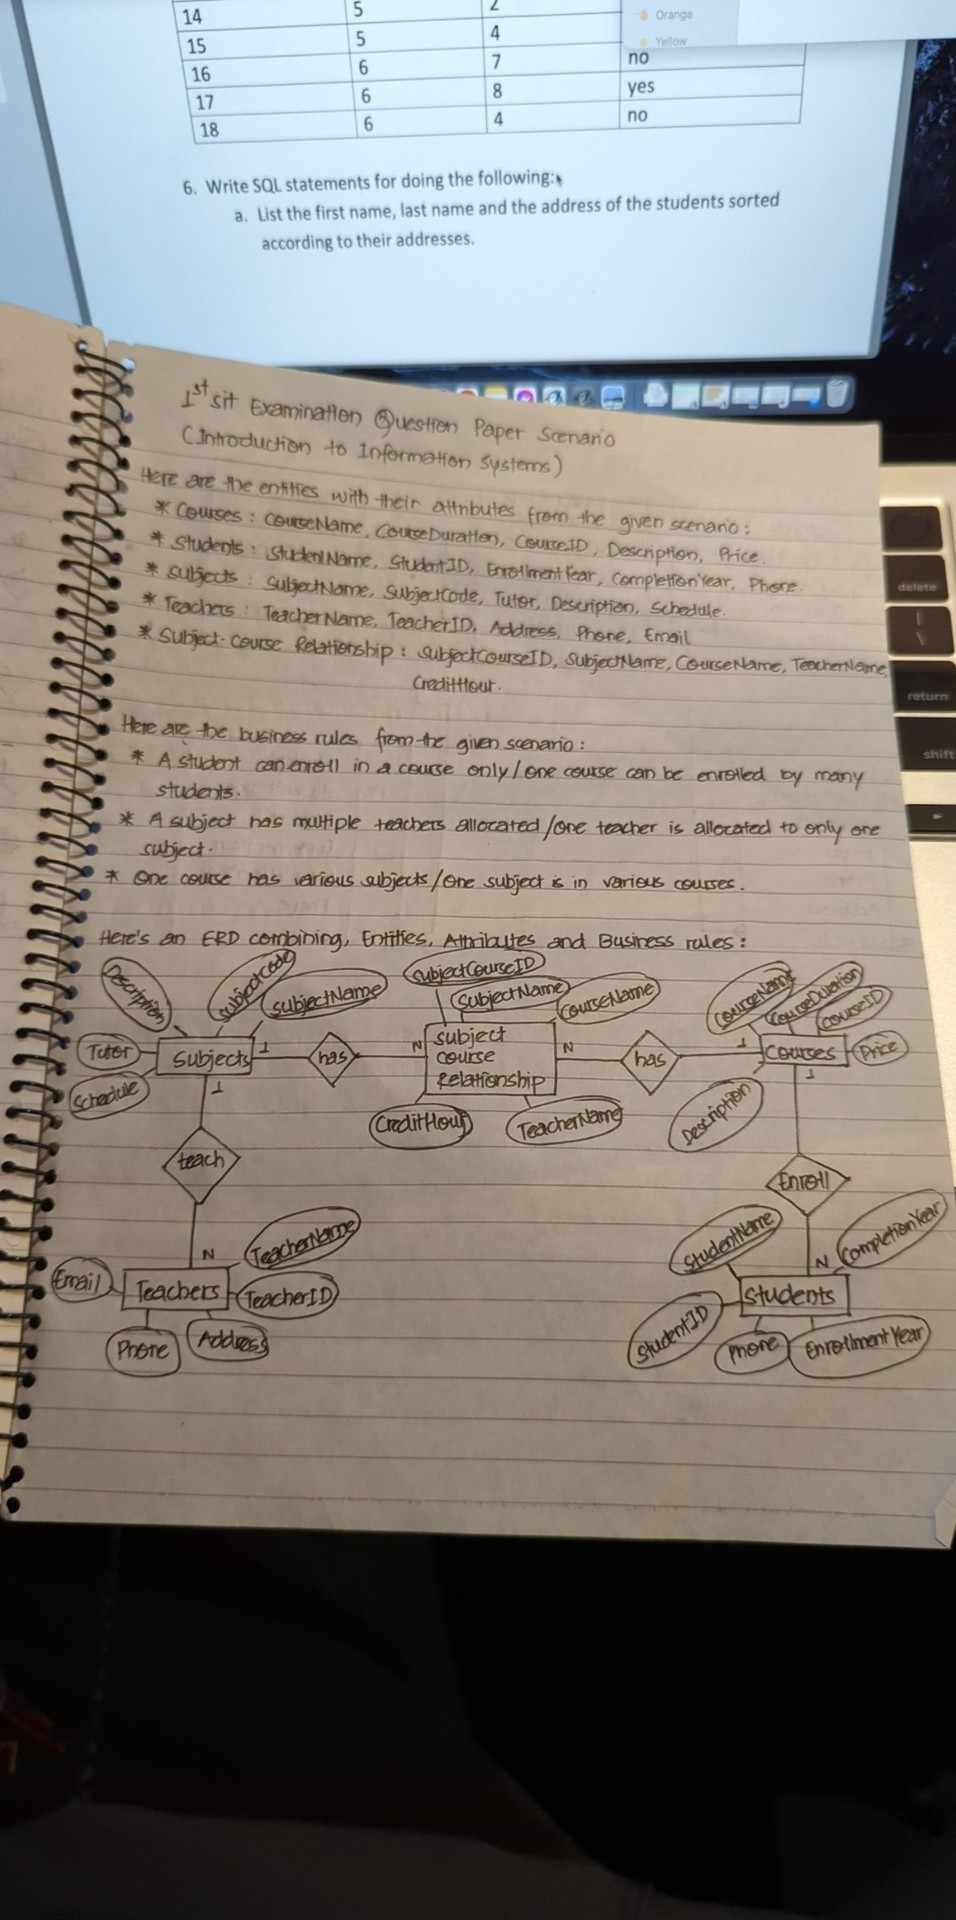 14 5 2
Orange
15 5 4
Yellow
16 6 7 no
17 6 8 yes
18 6 4 no
6. Write SQL statements for doing the following:
a. List the first name, last name and the address of the students sorted
according to their addresses.
1st sit Examination Question Paper Scenario
(Introduction to Information Systems)
Here are the entities with their attributes from the given scenario:
* Courses: CourseName, CourseDuration, CourseID, Description, Price.
* Students: StudentName, StudentID, EnrollmentYear, CompletionYear, Phone.
* Subjects: SubjectName, SubjectCode, Tutor, Description, Schedule.
* Teachers: TeacherName, TeacherID, Address, Phone, Email
* Subject-Course Relationship: SubjectCourseID, SubjectName, CourseName, TeacherName,
CreditHour.
Here are the business rules from the given scenario:
* A student can enroll in a course only/one course can be enrolled by many
students.
* A subject has multiple teachers allocated/one teacher is allocated to only one
subject.
* One course has various subjects/one subject is in various courses.
Here's an ERD combining, Entities, Attributes and Business rules:
Description
SubjectCode
SubjectName
SubjectCourseID
SubjectName
CourseName
CourseName
CourseDuration
CourseID
Tutor
Subjects
1
has
N
subject
course
Relationship
N
has
1
Courses
Price
Schedule
1
CreditHour
TeacherName
Description
1
teach
Enroll
N
TeacherName
StudentName
N
CompletionYear
Email
Teachers
TeacherID
Students
Phone
Address
StudentID
Phone
EnrollmentYear
delete
\
return
shift